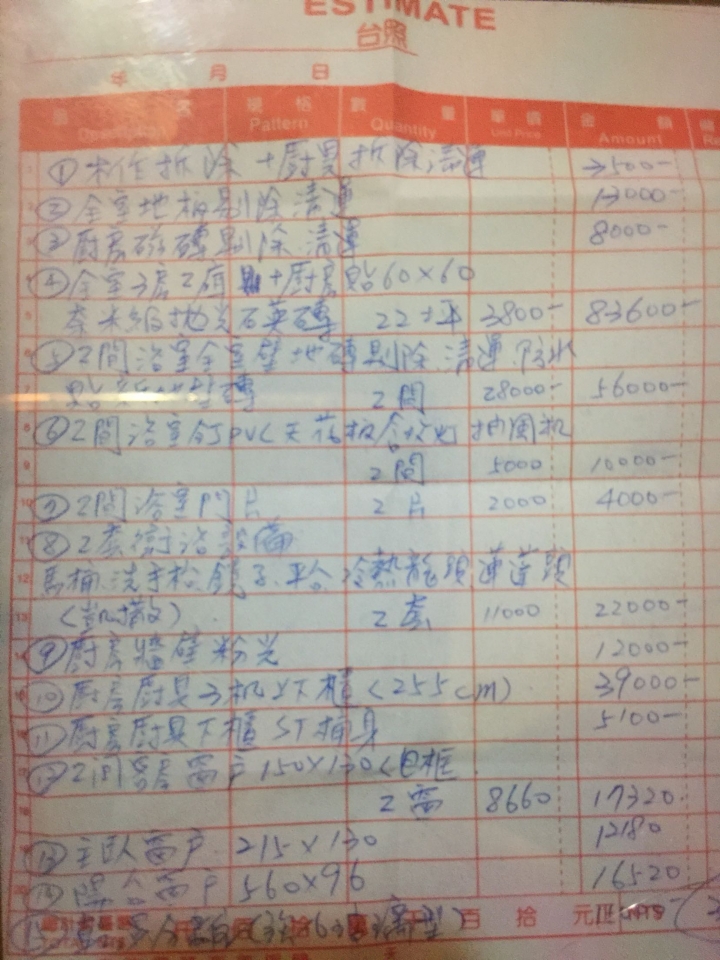 ESTIMATE
台照
年 月 日
名 規格 數量 單價 金額
Description Pattern Quantity Unit Price Amount
①木作拆除+廚具拆除清運 3500-
②全室地板剔除清運 13000-
③廚房磁磚剔除清運 8000-
④全室3房2廳 +廚房貼60×60
奈米級拋光石英磚 22坪 3800- 83600-
⑤2間浴室全室壁地磚剔除清運防水
貼 磚 2間 28000- 56000-
⑥2間浴室釘PVC天花板含 灯 抽風机
2間 5000 10000-
⑦2間浴室門片 2片 2000 4000-
⑧2套衛浴設備
馬桶.洗手枱.鏡子.平台.冷熱龍頭.蓮蓬頭
(凱撒) 2套 11000 22000-
⑨廚房牆壁粉光 12000-
⑩廚房廚具3机上下櫃(255cm) 39000-
⑪廚房廚具下櫃ST桶身 5100-
⑫2间客房窗户150×130 框
2窗 8660 17320.
⑬主臥窗户 215×130 12180
⑭陽台窗户 560×96 16520
⑮ 百 拾 元正 NT$